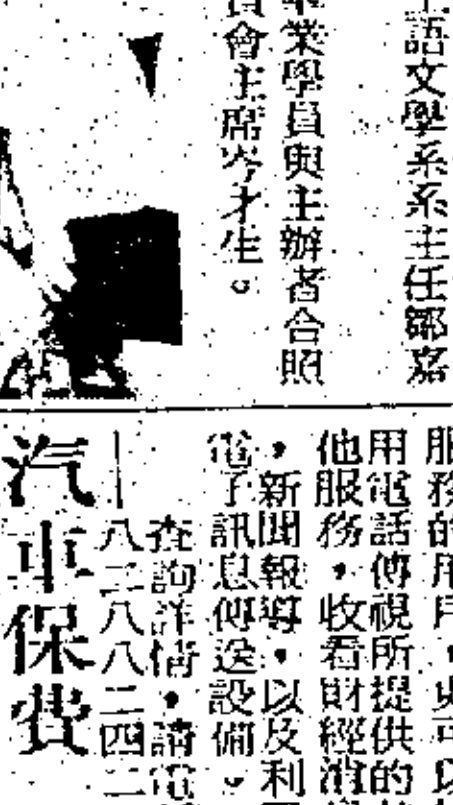 語文學系系主任鄒嘉
業學員與主辦者合照
會主席岑才生。
服務的用戶，更可以
用電話傳視所提供的
他服務，收看財經消
，新聞報導，以及利
電子訊息傳送設備。
查詢詳情，請電
—八二八八二四二
汽車保費